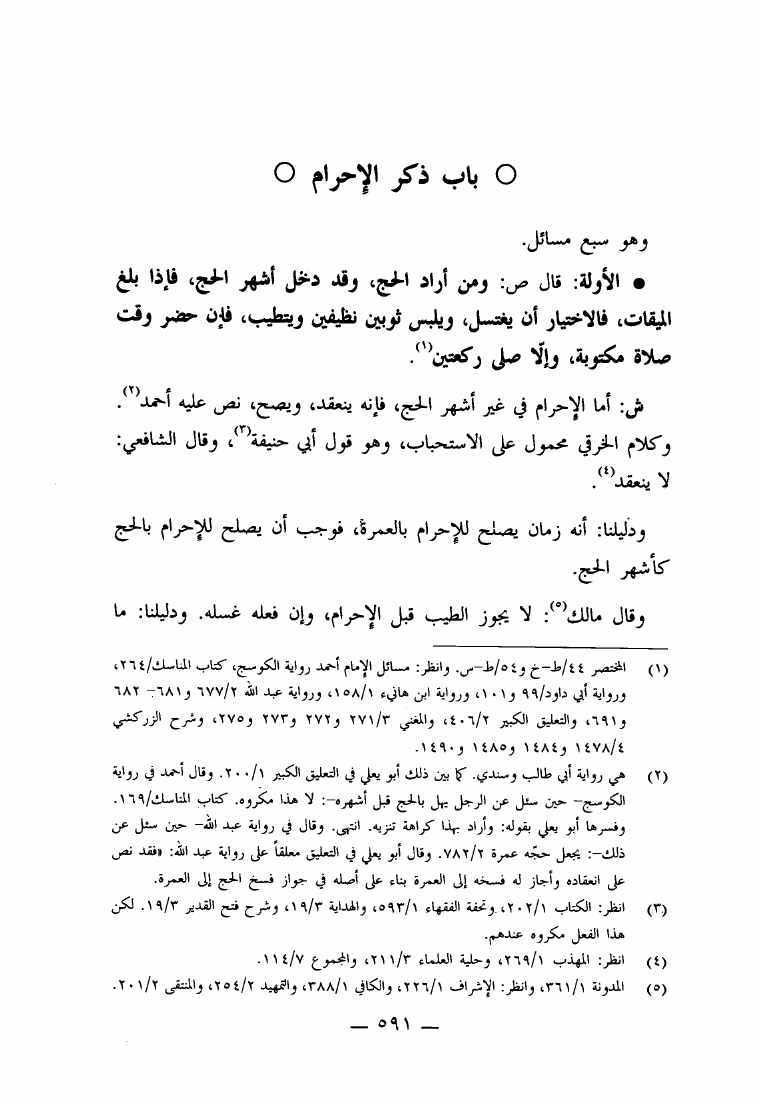 ○ باب ذكر الإحرام ○
وهو سبع مسائل.
● الأولة: قال ص: ومن أراد الحج، وقد دخل أشهر الحج، فإذا بلغ
الميقات، فالاختيار أن يغتسل، ويلبس ثوبين نظيفين ويتطيب، فإن حضر وقت
صلاة مكتوبة، وإلّا صلى ركعتين(١).
ش: أما الإحرام في غير أشهر الحج، فإنه ينعقد، ويصح، نص عليه أحمد(٢).
وكلام الخرقي محمول على الاستحباب، وهو قول أبي حنيفة(٣)، وقال الشافعي:
لا ينعقد(٤).
ودليلنا: أنه زمان يصلح للإحرام بالعمرة، فوجب أن يصلح للإحرام بالحج
كأشهر الحج.
وقال مالك(٥): لا يجوز الطيب قبل الإحرام، وإن فعله غسله. ودليلنا: ما
(١) المختصر ٤٤/ط-خ و٥٤/ط-س. وانظر: مسائل الإمام أحمد رواية الكوسج، كتاب المناسك/٢٦٤،
ورواية أبي داود/٩٩ و١٠١، ورواية ابن هانيء ١٥٨/١، ورواية عبد الله ٦٧٧/٢ و٦٨١- ٦٨٢
و٦٩١، والتعليق الكبير ٤٠٦/٢، والمغني ٢٧١/٣ و٢٧٢ و٢٧٣ و٢٧٥، وشرح الزركشي
١٤٧٨/٤ و١٤٨٤ و١٤٨٥ و١٤٩٠.
(٢) هي رواية أبي طالب وسندي. كما بين ذلك أبو يعلي في التعليق الكبير ٢٠٠/١. وقال أحمد في رواية
الكوسج- حين سئل عن الرجل يهل بالحج قبل أشهره-: لا هذا مكروه. كتاب المناسك/١٦٩.
وفسرها أبو يعلي بقوله: وأراد بهذا كراهة تنزيه. انتهى. وقال في رواية عبد الله- حين سئل عن
ذلك-: يجعل حجّه عمرة ٧٨٢/٢. وقال أبو يعلي في التعليق معلقاً على رواية عبد الله: «فقد نص
على انعقاده وأجاز له فسخه إلى العمرة بناء على أصله في جواز فسخ الحج إلى العمرة.
(٣) انظر: الكتاب ٢٠٢/١، وتحفة الفقهاء ٥٩٣/١، والهداية ١٩/٣، وشرح فتح القدير ١٩/٣. لكن
هذا الفعل مكروه عندهم.
(٤) انظر: المهذب ٢٦٩/١، وحلية العلماء ٢١١/٣، والمجموع ١١٤/٧.
(٥) المدونة ٣٦١/١، وانظر: الإشراف ٢٢٦/١، والكافي ٣٨٨/١، والتمهيد ٢٥٤/٢، والمنتقى ٢٠١/٢.
— ٥٩١ —